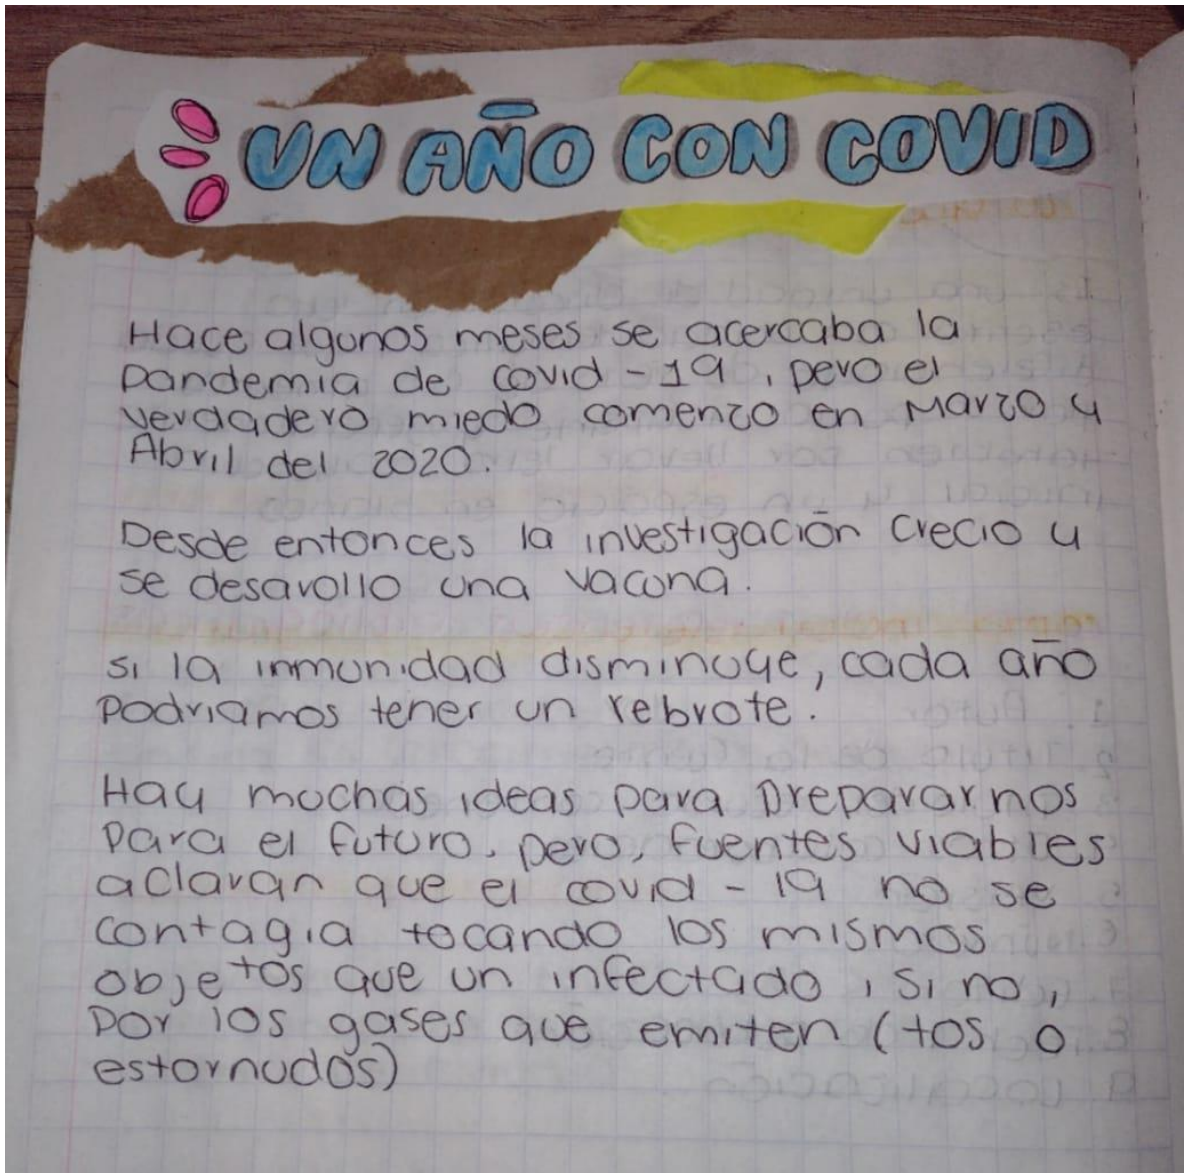 UN AÑO CON COVID
Hace algunos meses se acercaba la
pandemia de covid-19, pero el
verdadero miedo comenzo en Marzo y
Abril del 2020.
Desde entonces la investigación crecio y
se desarollo una vacuna.
si la inmunidad disminuye, cada año
podriamos tener un rebrote.
Hay muchas ideas para prepararnos
para el futuro, pero, fuentes viables
aclaran que el covid-19 no se
contagia tocando los mismos
objetos que un infectado, si no,
por los gases que emiten (tos o
estornudos)